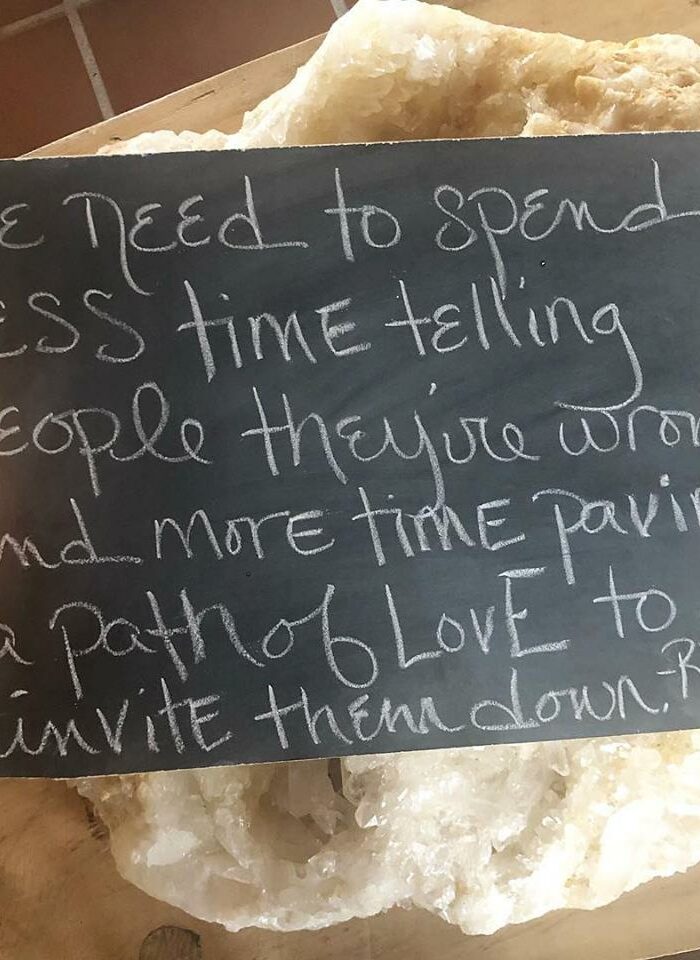 E NEED to spEnd
ESS timE tElling
Eople thEy're wron
nd MorE timE pavin
a path of LovE to
invitE thEm down. -R